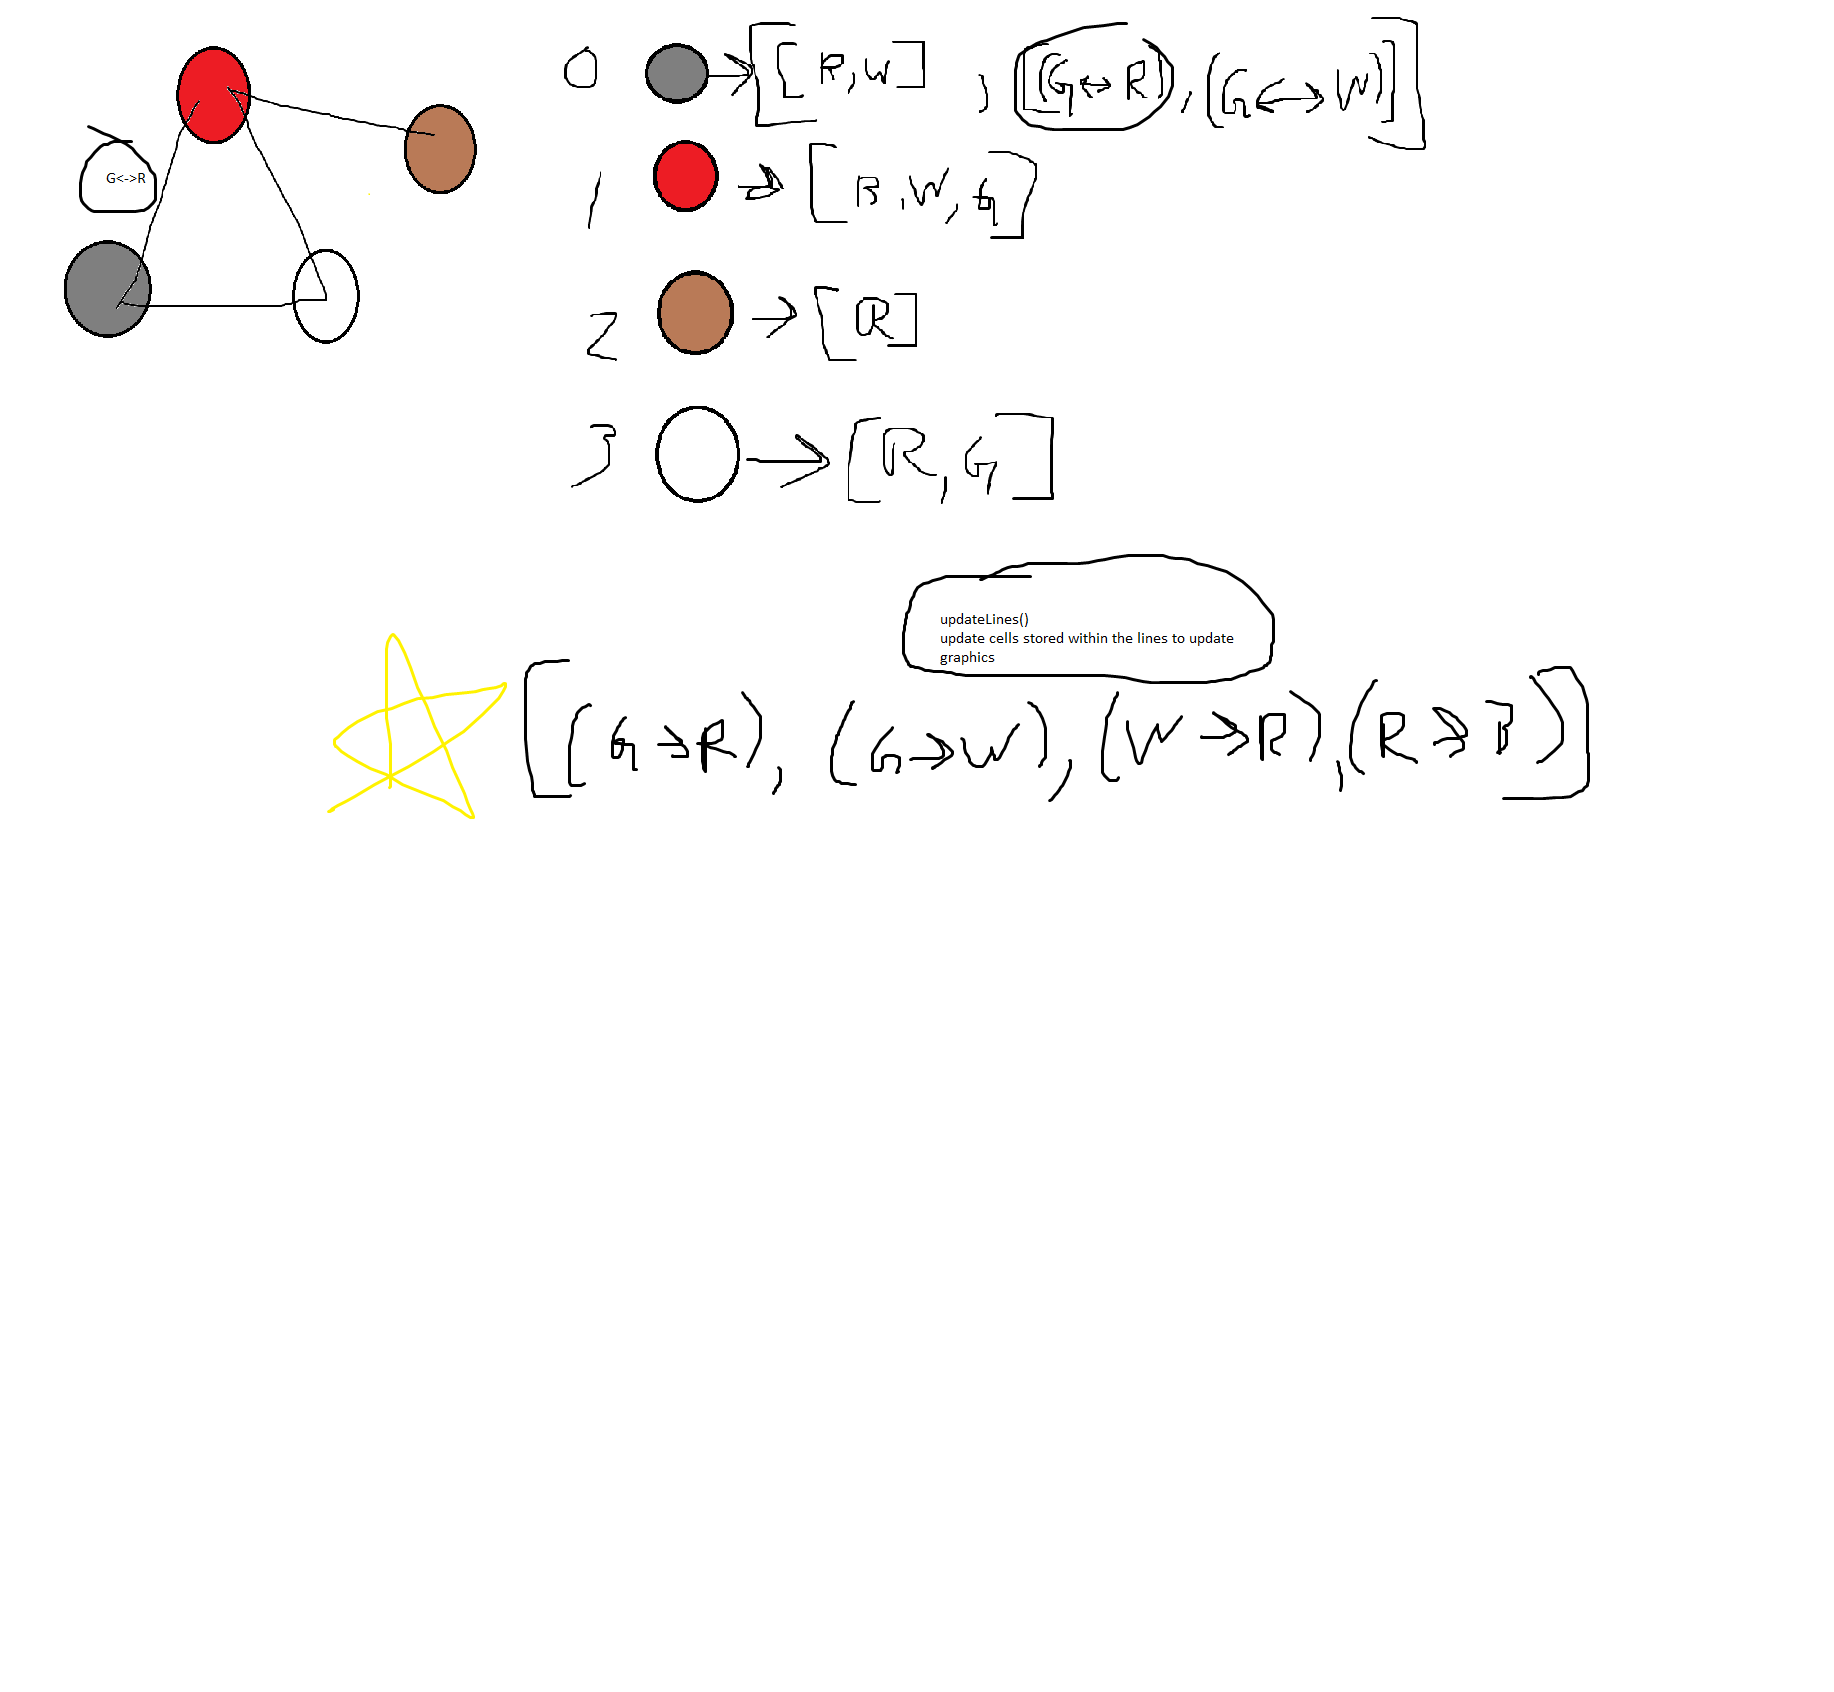 0 → [[R,W] , [(G↔R), (G↔W)]]
G<->R
1 → [B,W,G]
2 → [R]
3 → [R,G]
updateLines()
update cells stored within the lines to update
graphics
[(G→R), (G→W), (W→R), (R→B)]